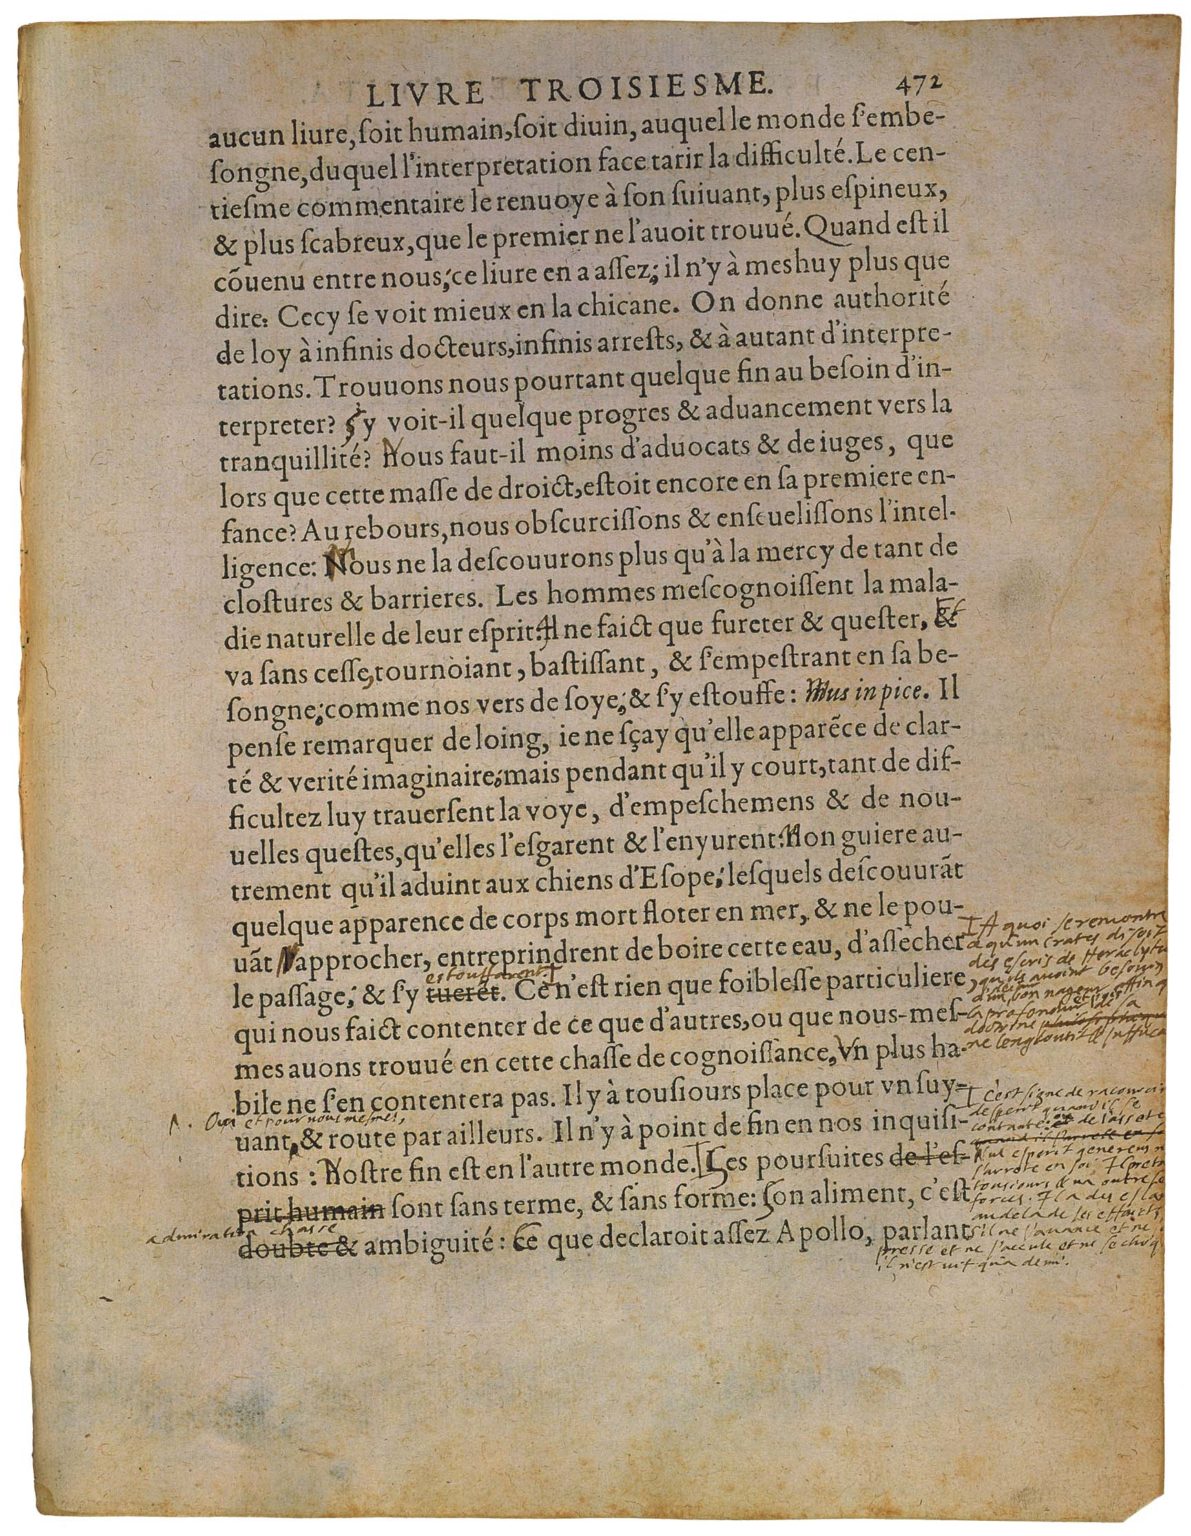 LIVRE TROISIESME. 472
aucun liure, ſoit humain, ſoit diuin, auquel le monde s'embe-
ſongne, duquel l'interpretation face tarir la difficulté. Le cen-
tieſme commentaire le renuoye à ſon ſuiuant, plus eſpineux,
& plus ſcabreux, que le premier ne l'auoit trouué. Quand eſt il
cõuenu entre nous, ce liure en a aſſez; il n'y à meshuy plus que
dire. Cecy ſe voit mieux en la chicane. On donne authorité
de loy à infinis docteurs, infinis arreſts, & à autant d'interpre-
tations. Trouuons nous pourtant quelque fin au beſoin d'in-
terpreter? ſ'y voit-il quelque progres & aduancement vers la
tranquillité? Nous faut-il moins d'aduocats & de iuges, que
lors que cette maſſe de droict, eſtoit encore en ſa premiere en-
fance? Au rebours, nous obſcurciſſons & enſeueliſſons l'intel-
ligence: Nous ne la deſcouurons plus qu'à la mercy de tant de
cloſtures & barrieres. Les hommes meſcognoiſſent la mala-
die naturelle de leur eſprit: Il ne faict que fureter & queſter, Et
va ſans ceſſe, tournoiant, baſtiſſant, & s'empeſtrant en ſa be-
ſongne; comme nos vers de ſoye; & s'y eſtouffe: Mus in pice. Il
penſe remarquer de loing, ie ne ſçay qu'elle apparẽce de clar-
té & verité imaginaire; mais pendant qu'il y court, tant de dif-
ficultez luy trauerſent la voye, d'empeſchemens & de nou-
uelles queſtes, qu'elles l'eſgarent & l'enyurent: Non guiere au-
trement qu'il aduint aux chiens d'Eſope; leſquels deſcouurãt
quelque apparence de corps mort floter en mer, & ne le pou-
uãt approcher, entreprindrent de boire cette eau, d'aſſecher
estouffarent
le paſſage; & s'y tuerẽt. Ce n'eſt rien que foibleſſe particuliere,
qui nous faict contenter de ce que d'autres, ou que nous-meſ-
mes auons trouué en cette chaſſe de cognoiſſance, Vn plus ha-
bile ne s'en contentera pas. Il y à touſiours place pour vn ſuy-
Oui et pour nous mesmes,
uant, & route par ailleurs. Il n'y à point de fin en nos inquiſi-
tions: Noſtre fin eſt en l'autre monde. Les pourſuites de l'eſ-
prit humain ſont ſans terme, & ſans forme: Son aliment, c'eſt
admiration chasse
doubte & ambiguité: Ce que declaroit aſſez Apollo, parlant
A quoi se rencontre
ce qu'un Crates disoit
des escris de Heraclytus
qu'ils auoint besouin
d'un bon nageur
la profondeur et
de sa doctrine
ne l'englouti et suffuca
C'est signe de racourcir
d'esprit quand il se
contante: ou de lassete
quand il s'arrete en so
Nul esprit genereus ne
s'arrete en soi: Il pret
tousiours et va outre se
forces. Il a des eslans
audela de ses effaicts
s'il ne s'auance et ne se
presse et ne s'accule et ne se choq
il n'est uif qu'a demi.